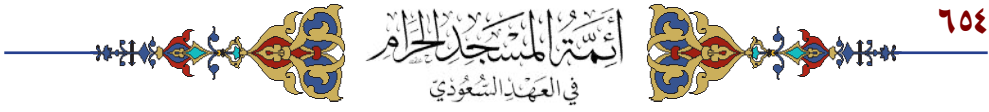 ٦٥٤
أَئِمَّةُ المَسْجِدِ الحَرَامِ
في العَهْدِ السُّعُودِيّ